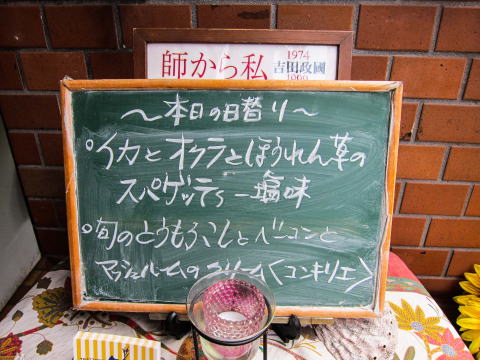 師から私
1974
吉田政國
〜本日の日替り〜
°イカとオクラとほうれん草の
スパゲッティ 塩味
°旬のとうもろこしとベーコンと
マッシュルームのクリーム〈コンキリエ〉